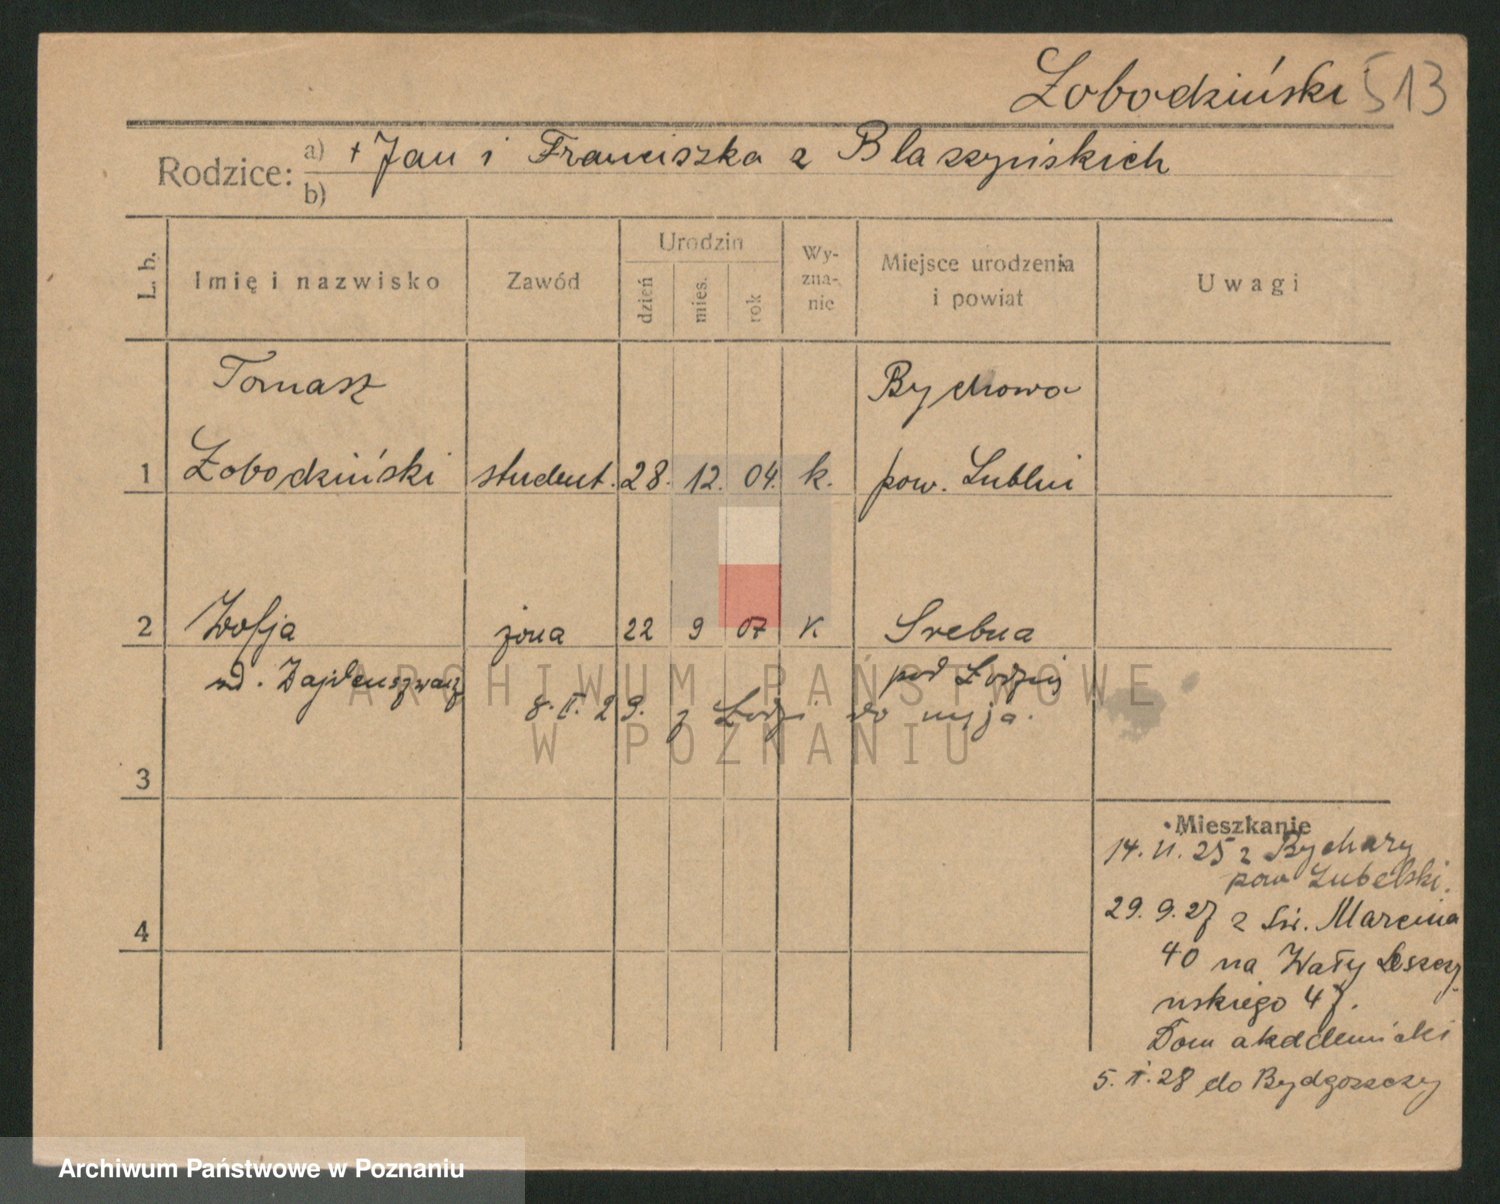 Łobodziński 513
Rodzice: a) + Jan i Franciszka z Blaszyńskich
b)
L. b.
Imię i nazwisko
Zawód
Urodzin
dzień
mies.
rok
Wy-
zna-
nie
Miejsce urodzenia
i powiat
Uwagi
Tomasz Bychowa
1 Łobodziński student. 28. 12. 04. k. pow. Lublin
2 Zofja żona 22 9 07 K Srebna
pod Łodzią
ARCHIWUM PAŃSTWOWE
29. z Łodzi do męża.
W POZNANIU
3
Mieszkanie
25 z Bychawy
pow Lubelski.
4
29. 9. 27 z Św. Marcina
40 na Wały Leszczy
ńskiego 47.
Dom akademicki
28 do Bydgoszczy
Archiwum Państwowe w Poznaniu